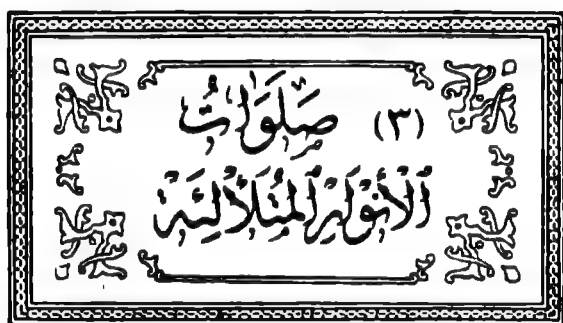 (٣) صَلَوَاتُ
الْأَنْوَارِ الْمُتَلَأْلِئَةِ